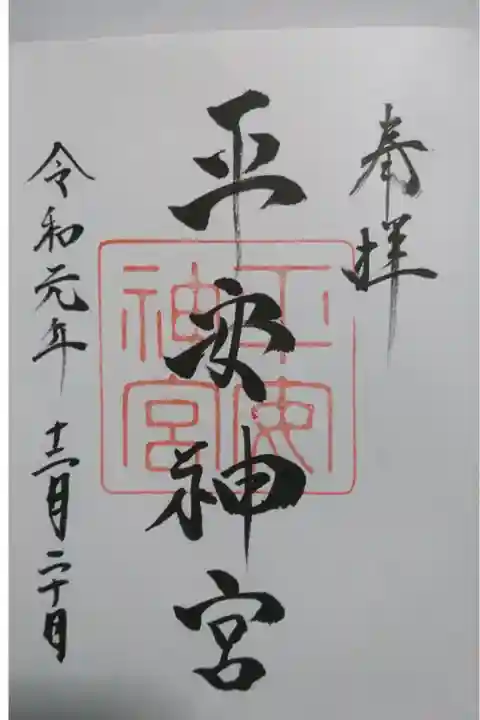 奉拝
平安神宮
平安神宮
令和元年 十二月二十日